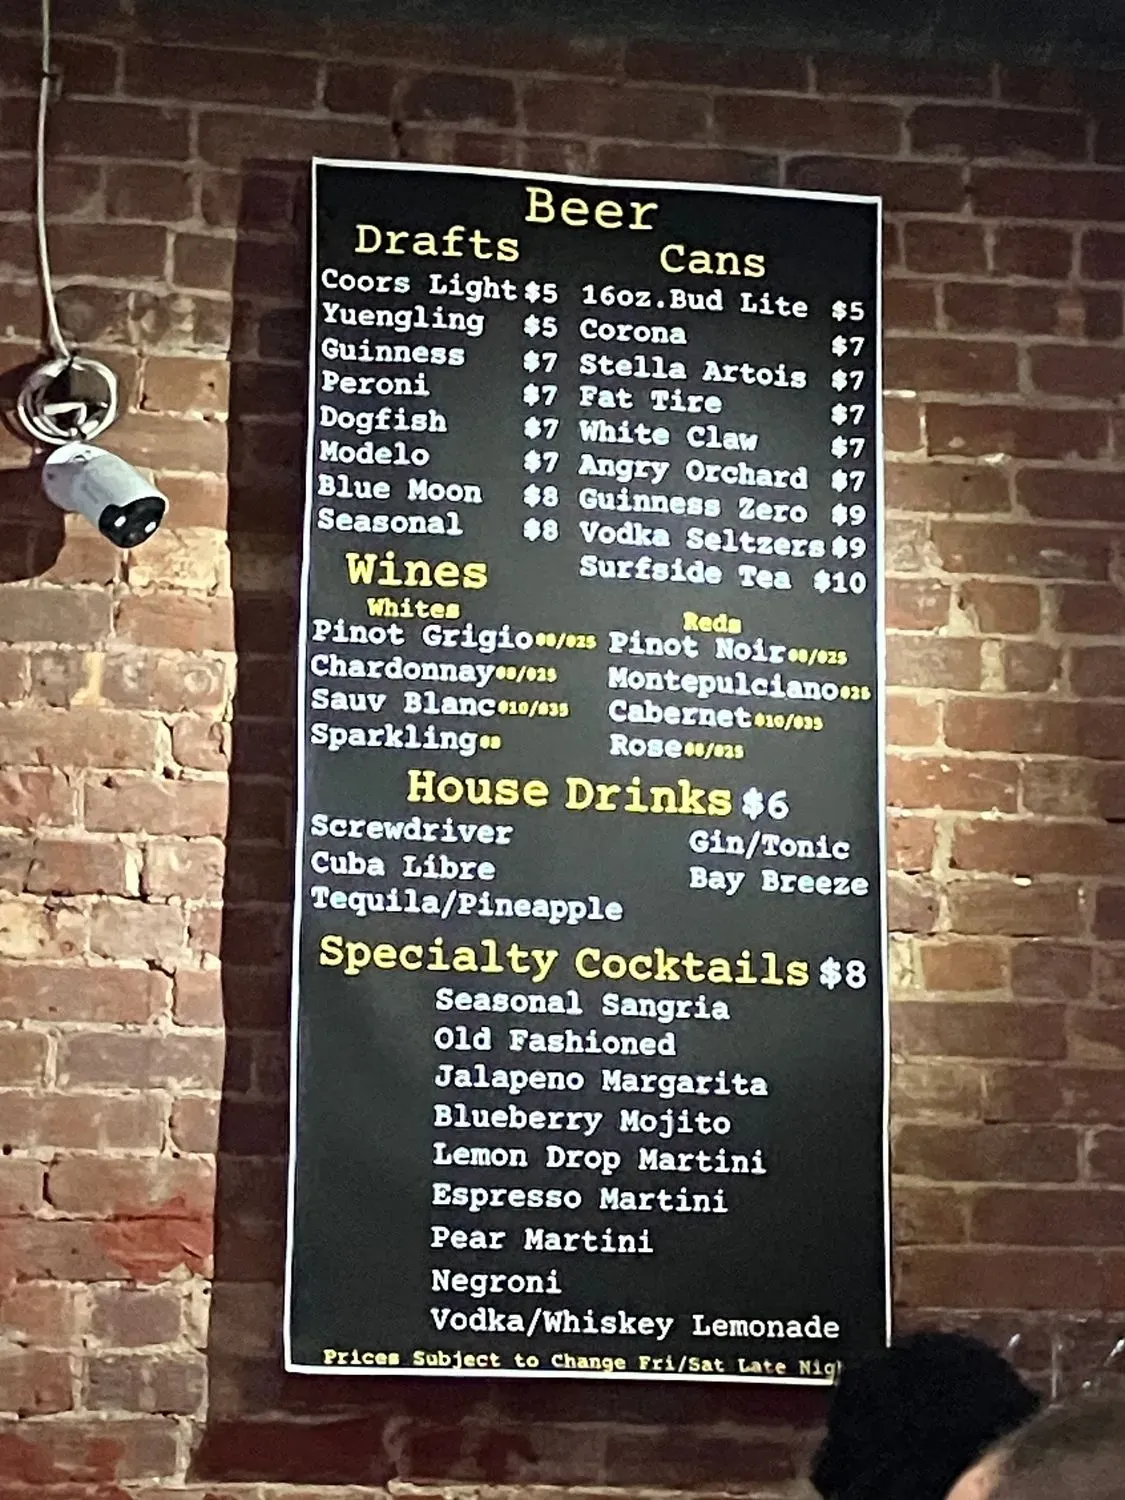 Beer
Drafts
Coors Light $5
Yuengling $5
Guinness $7
Peroni $7
Dogfish $7
Modelo $7
Blue Moon $8
Seasonal $8
Cans
16oz.Bud Lite $5
Corona $7
Stella Artois $7
Fat Tire $7
White Claw $7
Angry Orchard $7
Guinness Zero $9
Vodka Seltzers $9
Surfside Tea $10
Wines
Whites
Pinot Grigio
Chardonnay
Sauv Blanc $10/$35
Sparkling
Reds
Pinot Noir
Montepulciano
Cabernet $10/$35
Rose
House Drinks $6
Screwdriver
Cuba Libre
Tequila/Pineapple
Gin/Tonic
Bay Breeze
Specialty Cocktails $8
Seasonal Sangria
Old Fashioned
Jalapeno Margarita
Blueberry Mojito
Lemon Drop Martini
Espresso Martini
Pear Martini
Negroni
Vodka/Whiskey Lemonade
Prices Subject to Change Fri/Sat Late